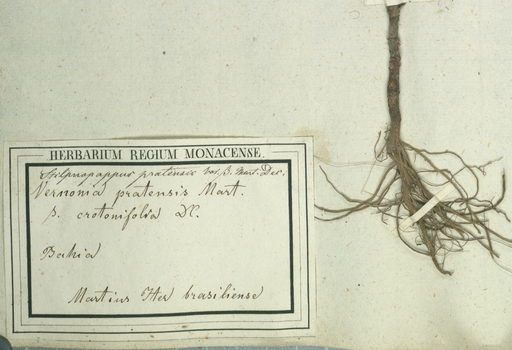 HERBARIUM REGIUM MONACENSE.
Stilpnopappus pratensis var. β. Mart. Dec.
Vernonia pratensis Mart.
β. crotonifolia DC.
Bahia
Martius Iter brasiliense